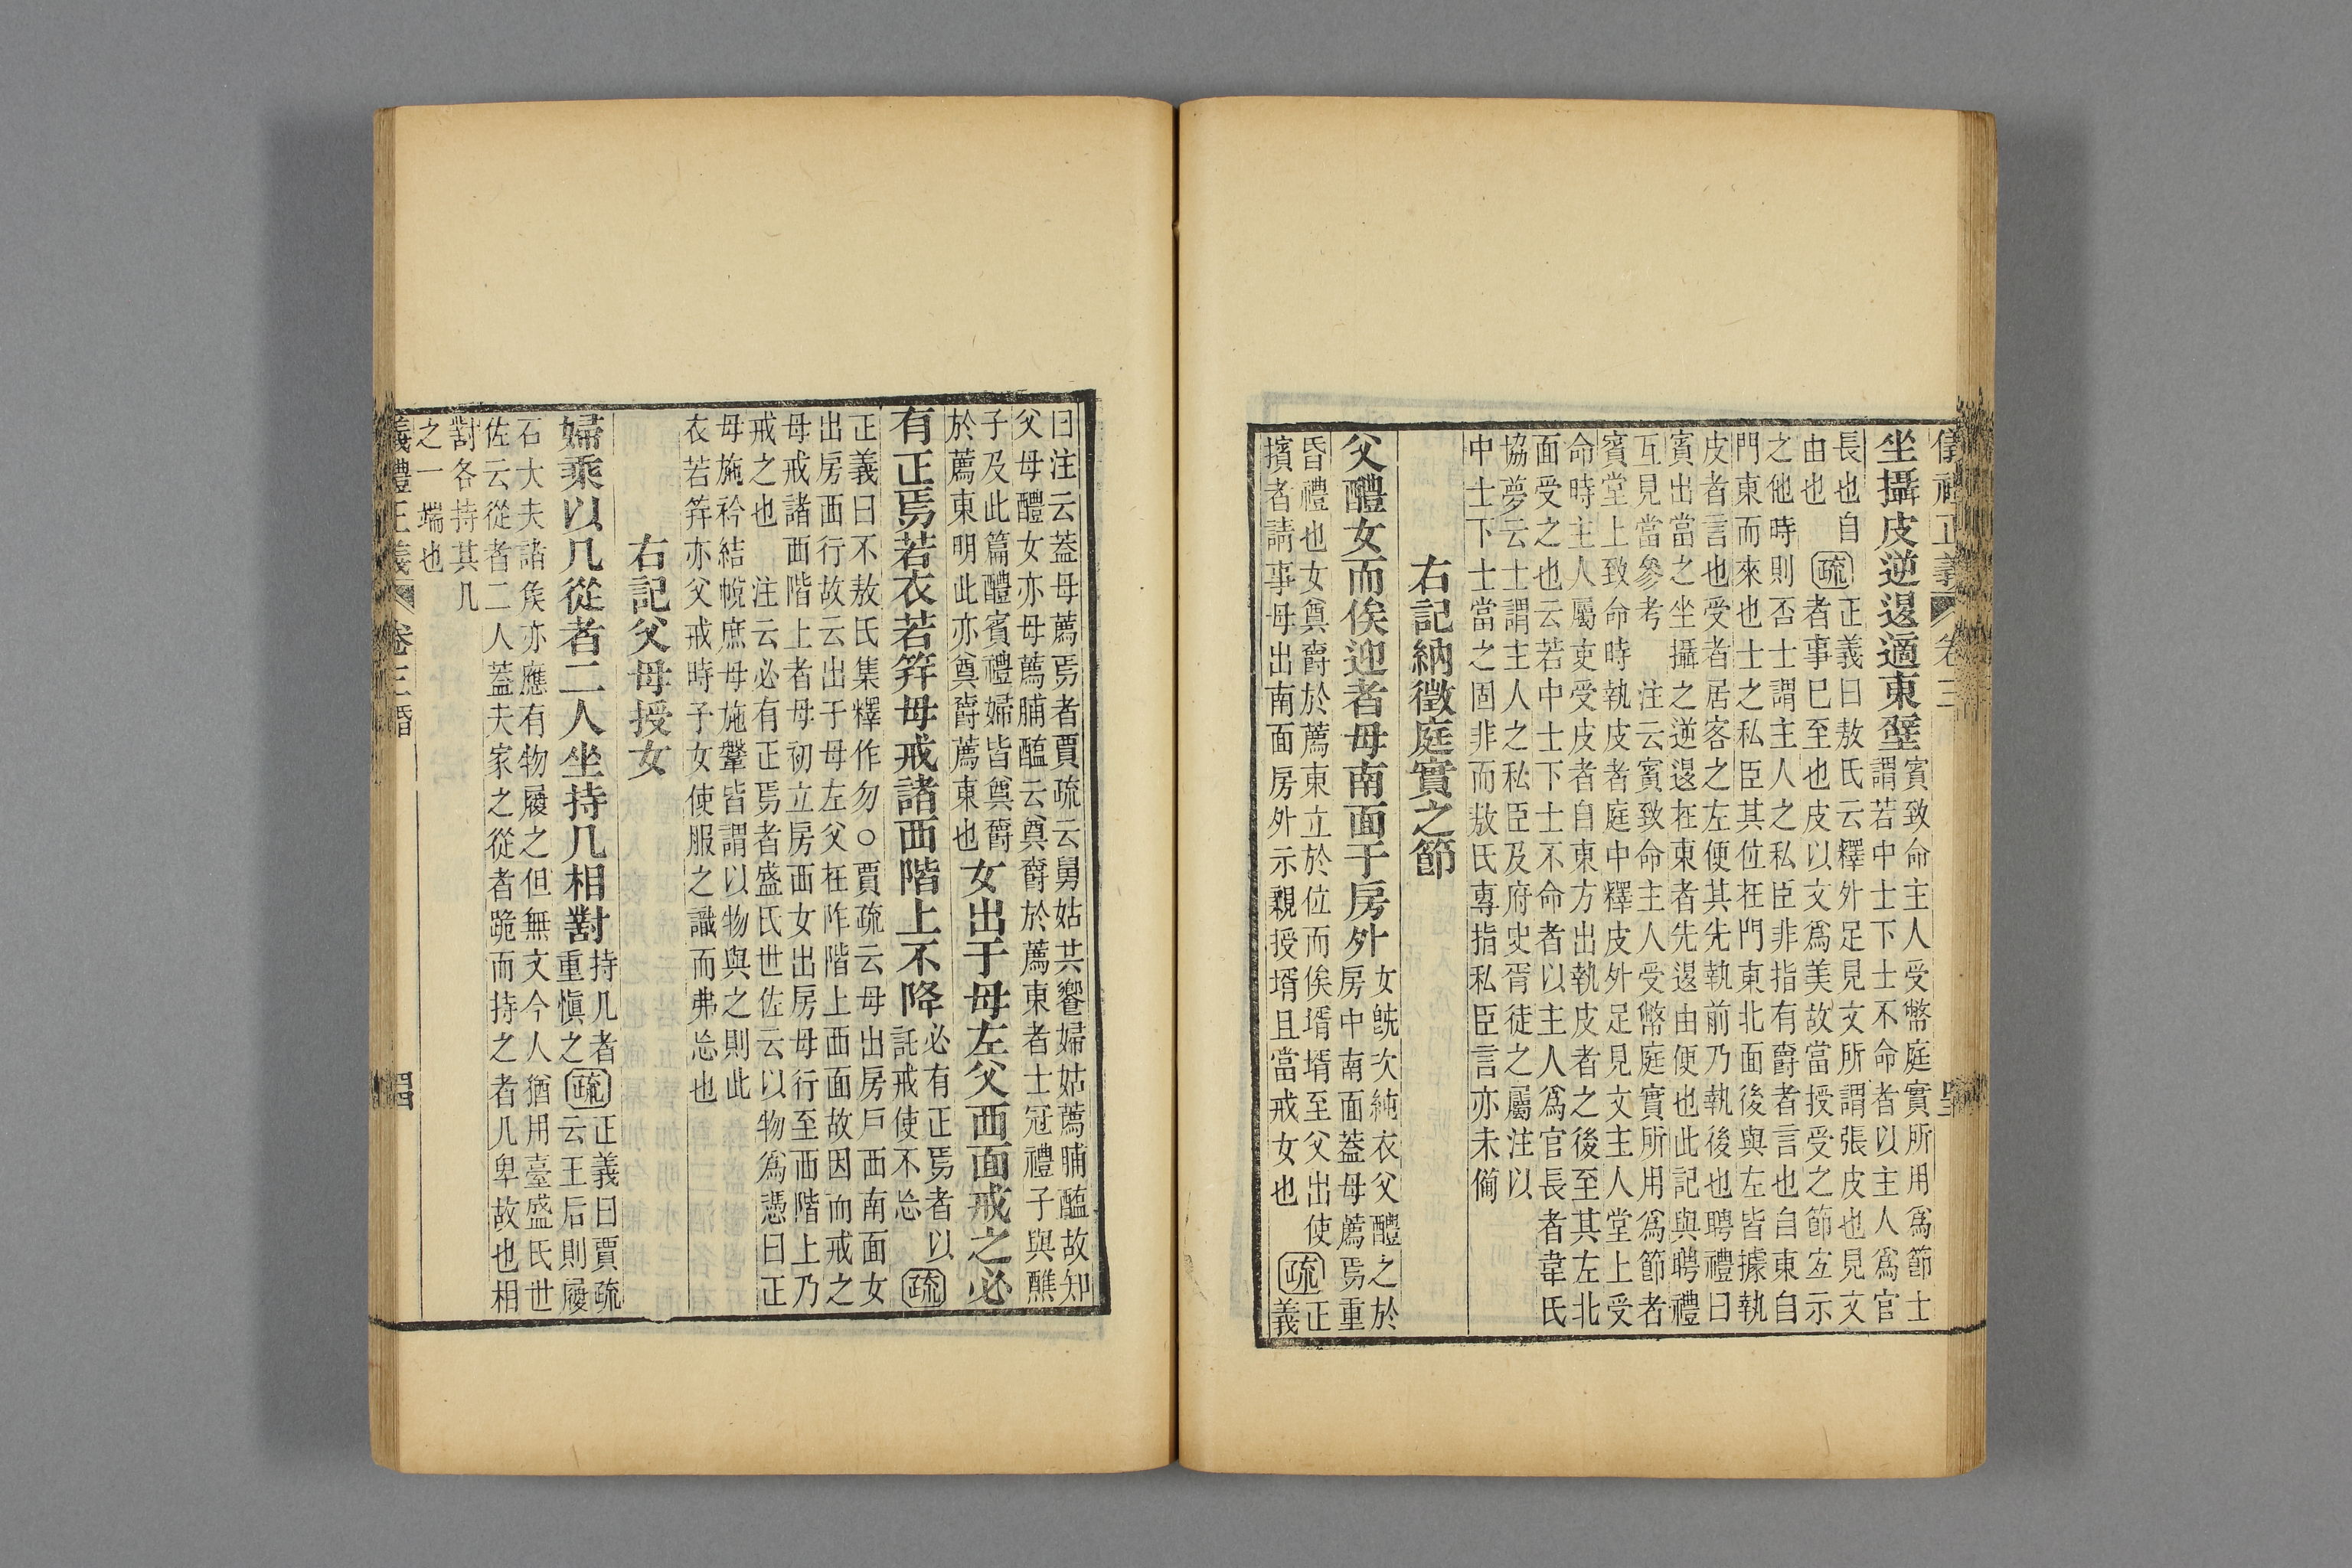 儀禮正義 卷三
坐攝皮逆退適東壁
賓致命主人受幣庭實所用爲節士
謂若中士下士不命者以主人爲官
長也自
由也
疏
正義曰敖氏云釋外足見文所謂張皮也見文
者事已至也皮以文爲美故當授受之節宐示
之他時則否士謂主人之私臣非指有爵者言也自東自
門東而來也士之私臣其位在門東北面後與左皆據執
皮者言也受者居客之左便其先執前乃執後也聘禮曰
賓出當之坐攝之逆退在東者先退由便也此記與聘禮
互見當參考 注云賓致命主人受幣庭實所用爲節者
賓堂上致命時執皮者庭中釋皮外足見文主人堂上受
命時主人屬吏受皮者自東方出執皮者之後至其左北
面受之也云若中士下士不命者以主人爲官長者韋氏
協夢云士謂主人之私臣及府史胥徒之屬注以
中士下士當之固非而敖氏專指私臣言亦未備
右記納徵庭實之節
父醴女而俟迎者母南面于房外
女旣次純衣父醴之於
房中南面蓋母薦焉重
昏禮也女奠爵於薦東立於位而俟壻壻至父出使
擯者請事母出南面房外示親授壻且當戒女也
疏
正
義
曰注云蓋母薦焉者賈疏云舅姑共饗婦姑薦脯醢故知
父母醴女亦母薦脯醢云奠爵於薦東者士冠禮子與醮
子及此篇醴賓禮婦皆奠爵
於薦東明此亦奠爵薦東也
女出于母左父西面戒之必
有正焉若衣若笄母戒諸西階上不降
必有正焉者以
託戒使不忘
疏
正義曰不敖氏集釋作勿○賈疏云母出房戶西南面女
出房西行故云出于母左父在阼階上西面故因而戒之
母戒諸西階上者母初立房西女出房母行至西階上乃
戒之也 注云必有正焉者盛氏世佐云以物爲憑曰正
母施衿結帨庶母施鞶皆謂以物與之則此
衣若笄亦父戒時予女使服之識而弗忘也
右記父母授女
婦乘以几從者二人坐持几相對
持几者
重愼之
疏
正義曰賈疏
云王后則履
石大夫諸矦亦應有物履之但無文今人猶用臺盛氏世
佐云從者二人蓋夫家之從者跪而持之者几卑故也相
對各持其几
之一端也
義禮正義 卷三 婚